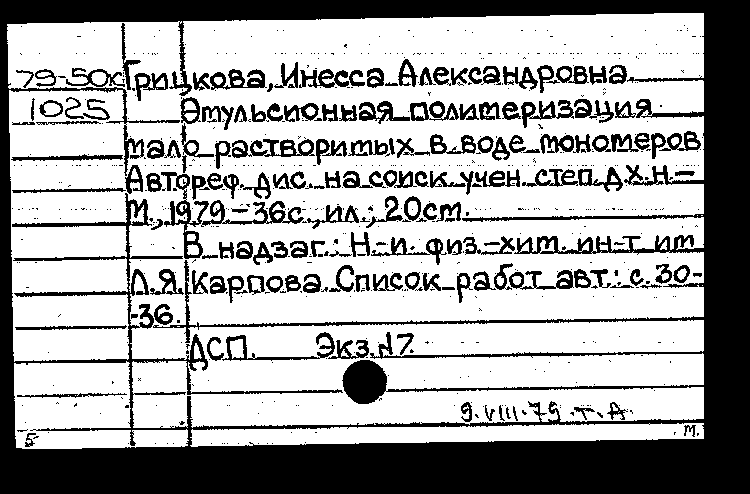 79-50к Грицкова, Инесса Александровна.
1025 Эмульсионная полимеризация
мало растворимых в воде мономеров
Автореф. дис. на соиск. учен. степ. д.х.н. –
М., 1979. – 36с., ил.; 20см.
В надзаг.: Н.-и. физ.-хим. ин-т им.
Л.Я. Карпова. Список работ авт.: с. 30-
-36.
ДСП. Экз. №7.
9.VIII.79 . т. А.
5 м.